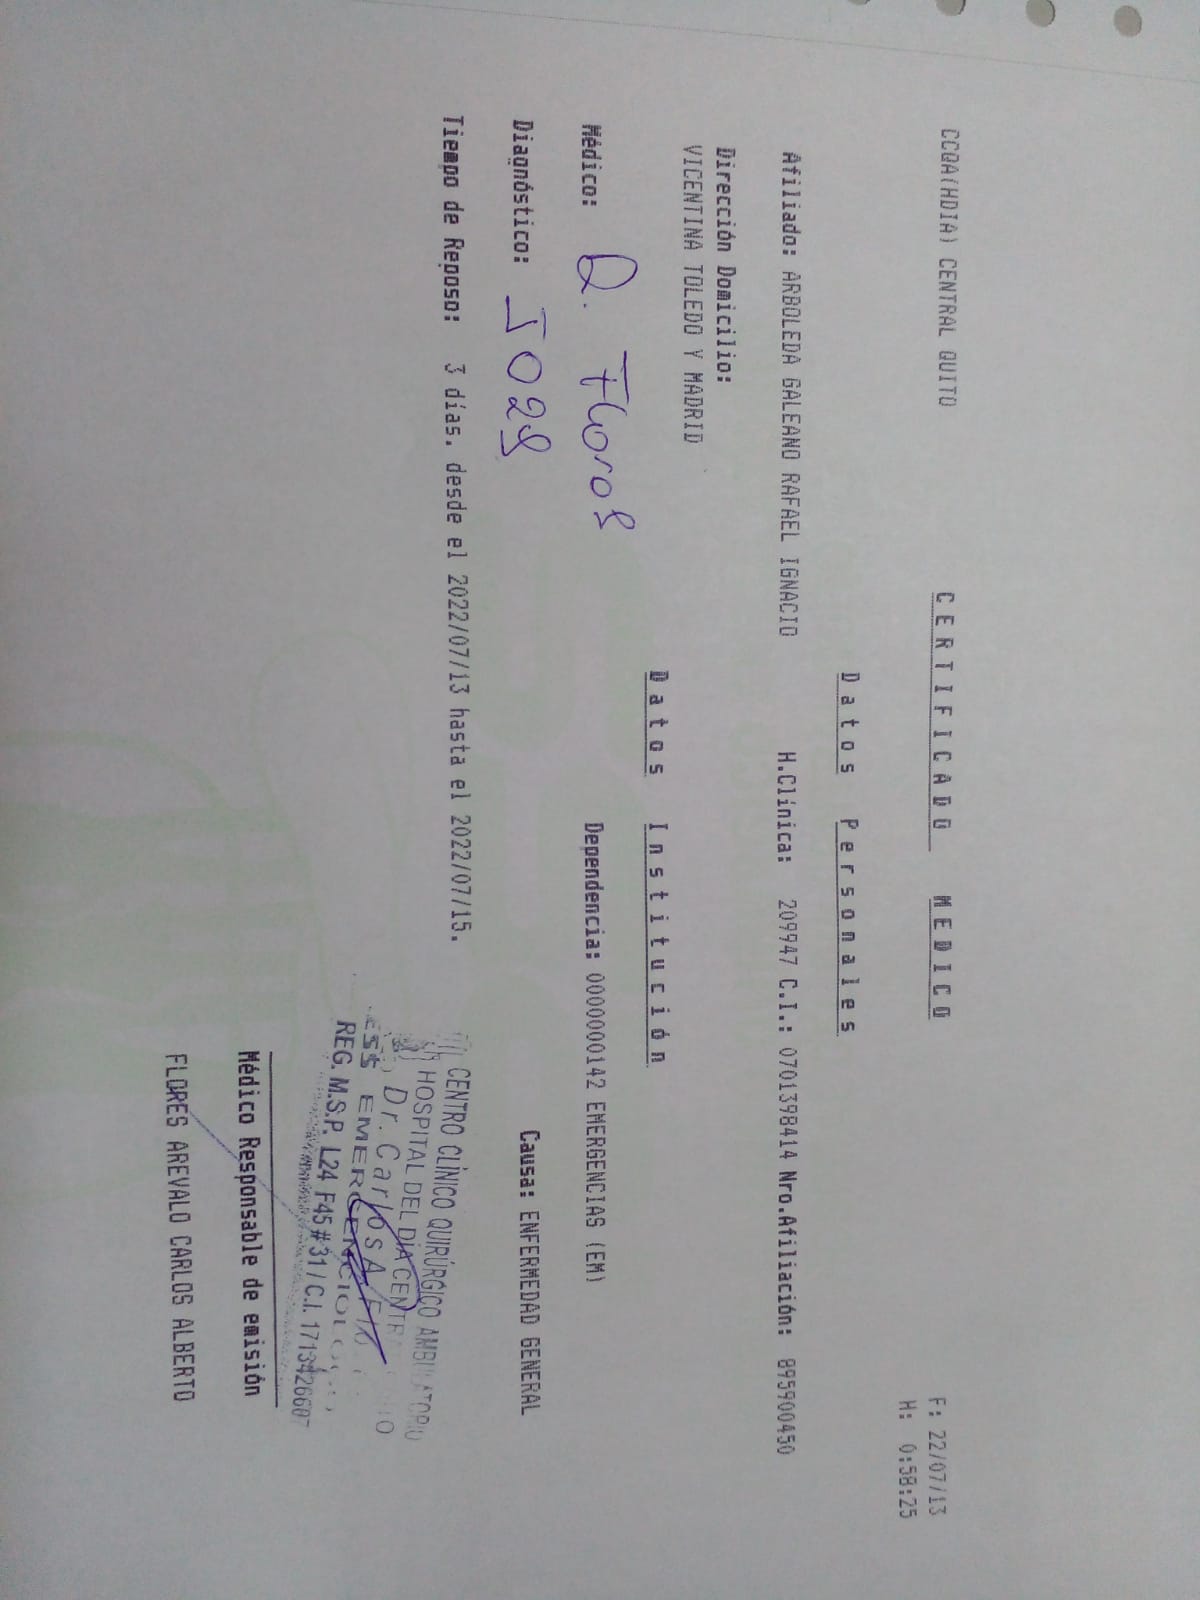 CCQA(HDIA) CENTRAL QUITO
F: 22/07/13
H: 0:58:25
CERTIFICADO MEDICO
Datos Personales
Afiliado: ARBOLEDA GALEANO RAFAEL IGNACIO H.Clínica: 209947 C.I.: 0701398414 Nro.Afiliación: 895900450
Dirección Domicilio:
VICENTINA TOLEDO Y MADRID
Datos Institución
Médico: D. Flores Dependencia: 0000000142 EMERGENCIAS (EM)
Diagnóstico: J029 Causa: ENFERMEDAD GENERAL
Tiempo de Reposo: 3 días. desde el 2022/07/13 hasta el 2022/07/15.
CENTRO CLÍNICO QUIRÚRGICO AMBULATORIO
HOSPITAL DEL DÍA CENTR
Dr. Carlos A.
REG. M.S.P. L24 F45 #31 / C.I. 1713426607
Médico Responsable de emisión
FLORES AREVALO CARLOS ALBERTO